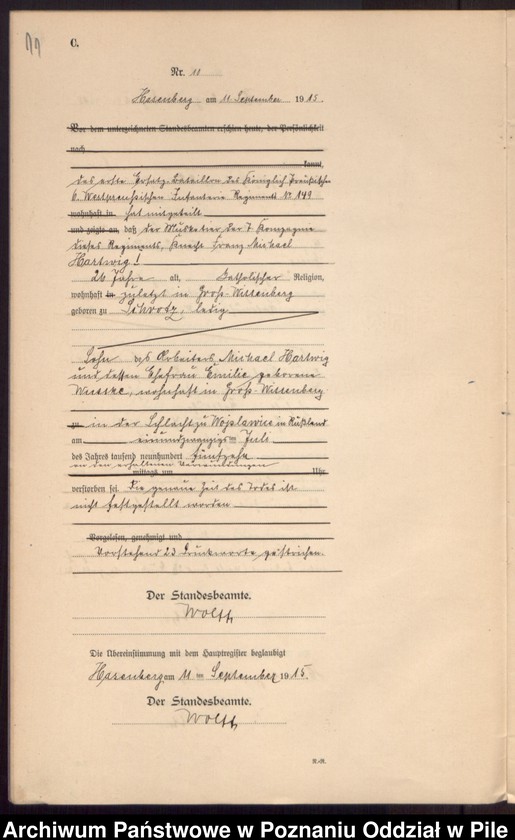 C.
Nr. 11
Hasenberg am 11 September 1915.
Vor dem unterzeichneten Standesbeamten erschien heute, der Persönlichkeit
nach
kannt,
das erste Ersatz-Bataillon des Königlich Preußischen
6. Westpreußischen Infanterie Regiments Nr 149
wohnhaft in hat mitgeteilt
und zeigte an, daß der Musketier der 7 Kompagnie
dieses Regiments, Knecht Franz Michael
Hartwig!
26 Jahre alt, Katholischer Religion,
wohnhaft in zuletzt in Groß-Wittenberg
geboren zu Schrotz, ledig
Sohn des Arbeiters Michael Hartwig
und dessen Ehefrau Emilie geborene
wohnhaft in Groß-Wittenberg
zu in der Schlacht zu Wojslawice in Rußland
am einundzwanzigsten Juli
des Jahres tausend neunhundert fünfzehn
an den erhaltenen Verwundungen
mittags um Uhr
verstorben sei. Die genaue Zeit des Todes ist
nicht festgestellt worden
Vorgelesen, genehmigt und
Vorstehend 23 Druckworte gestrichen.
Der Standesbeamte.
Wolff
Die Übereinstimmung mit dem Hauptregister beglaubigt
Hasenberg am 11 ten September 1915.
Der Standesbeamte.
Wolff
R.-R.
Archiwum Państwowe w Poznaniu Oddział w Pile